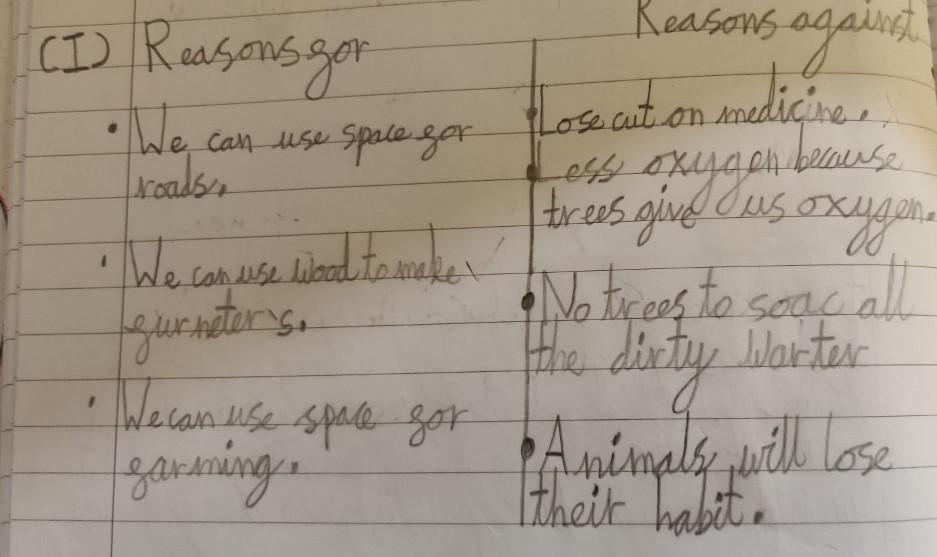 (I) Reasons gor
We can use space gor
roads.
We can use wood to make
gurneter's.
We can use space gor
garming.
Reasons against
Lose cut on medicine.
Less oxygen because
trees give us oxygen.
No trees to soac all
the dirty warter
Animals will lose
their habit.